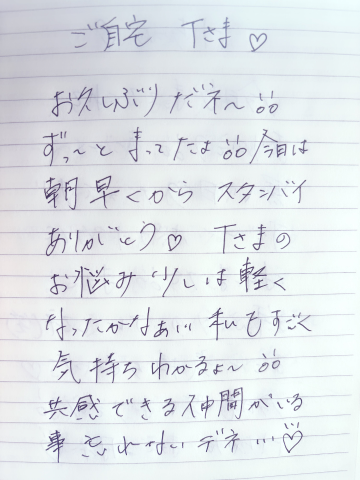 ご自宅 Tさま♡
お久しぶりだネ〜!!
ずっ〜と まってたよ!!今日は
朝早くから スタンバイ
ありがとう♡ Tさまの
お悩み少しは軽く
なったかなぁい 私もすごく
気持ちわかるょ〜!!
共感できる仲間がいる
事忘れないデネ…♡